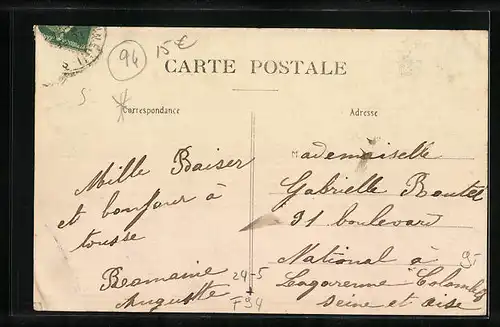 94
15€
CARTE POSTALE
Correspondance
Adresse
Mille Baiser
et bonjour à
tousse
Auguste
24-5
F94
Mademoiselle
Gabrielle Boutet
91 boulevard
National à
Lagarenne Colombes
Seine et oise